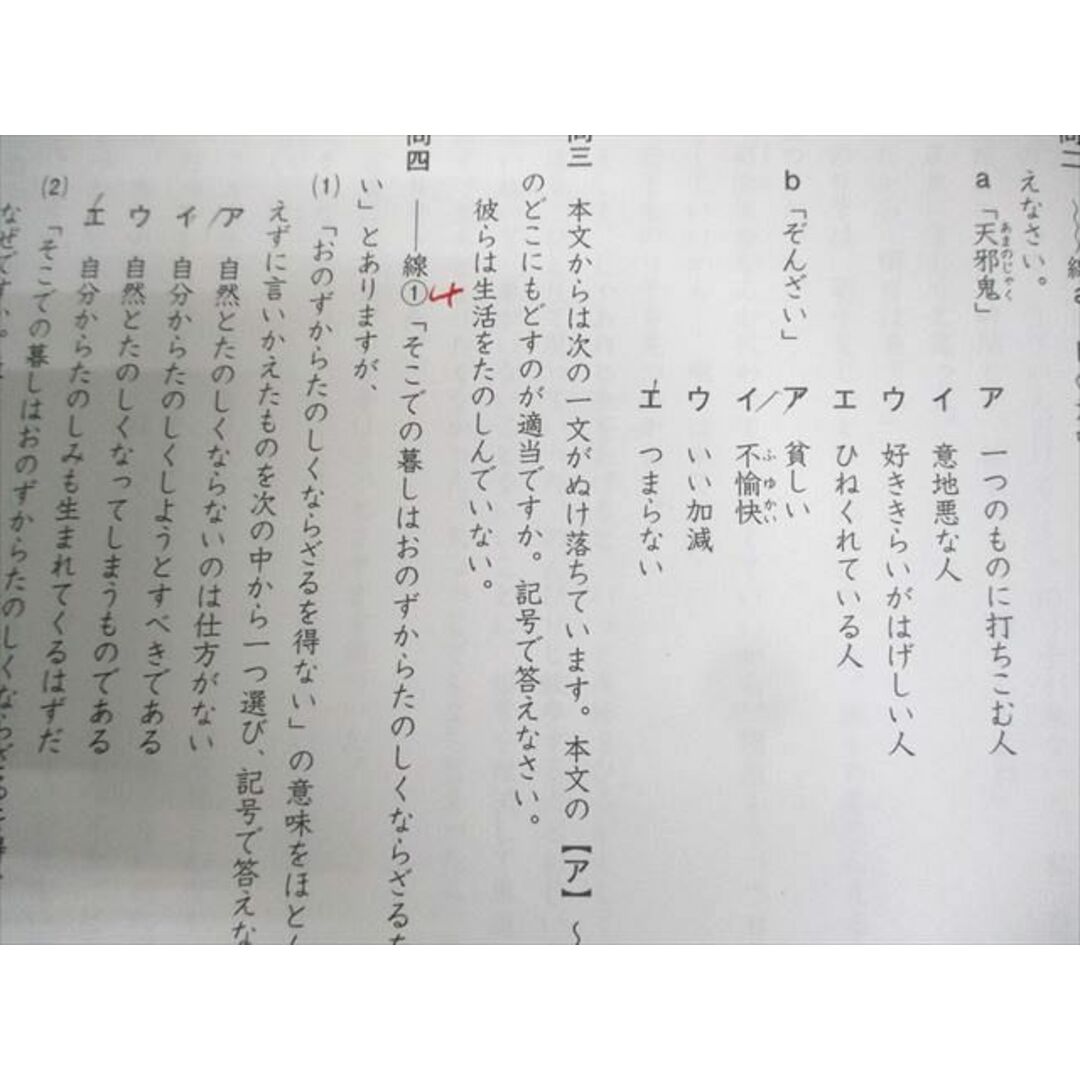 えなさい。
a「天邪鬼」
あまのじゃく
ア 一つのものに打ちこむ人
イ 意地悪な人
ウ 好ききらいがはげしい人
エ ひねくれている人
b「ぞんざい」
ア 貧しい
イ 不愉快
ふゆかい
ウ いい加減
エ つまらない
問三 本文からは次の一文がぬけ落ちています。本文の【ア】〜
のどこにもどすのが適当ですか。記号で答えなさい。
彼らは生活をたのしんでいない。
問四 ――線①「そこでの暮しはおのずからたのしくならざるを
い」とありますが、
(1)「おのずからたのしくならざるを得ない」の意味をほとん
えずに言いかえたものを次の中から一つ選び、記号で答えな
ア 自然とたのしくならないのは仕方がない
イ 自分からたのしくしようとすべきである
ウ 自然とたのしくなってしまうものである
エ 自分からたのしみも生まれてくるはずだ
(2)「そこでの暮しはおのずからたのしくならざるを得
なぜですか。